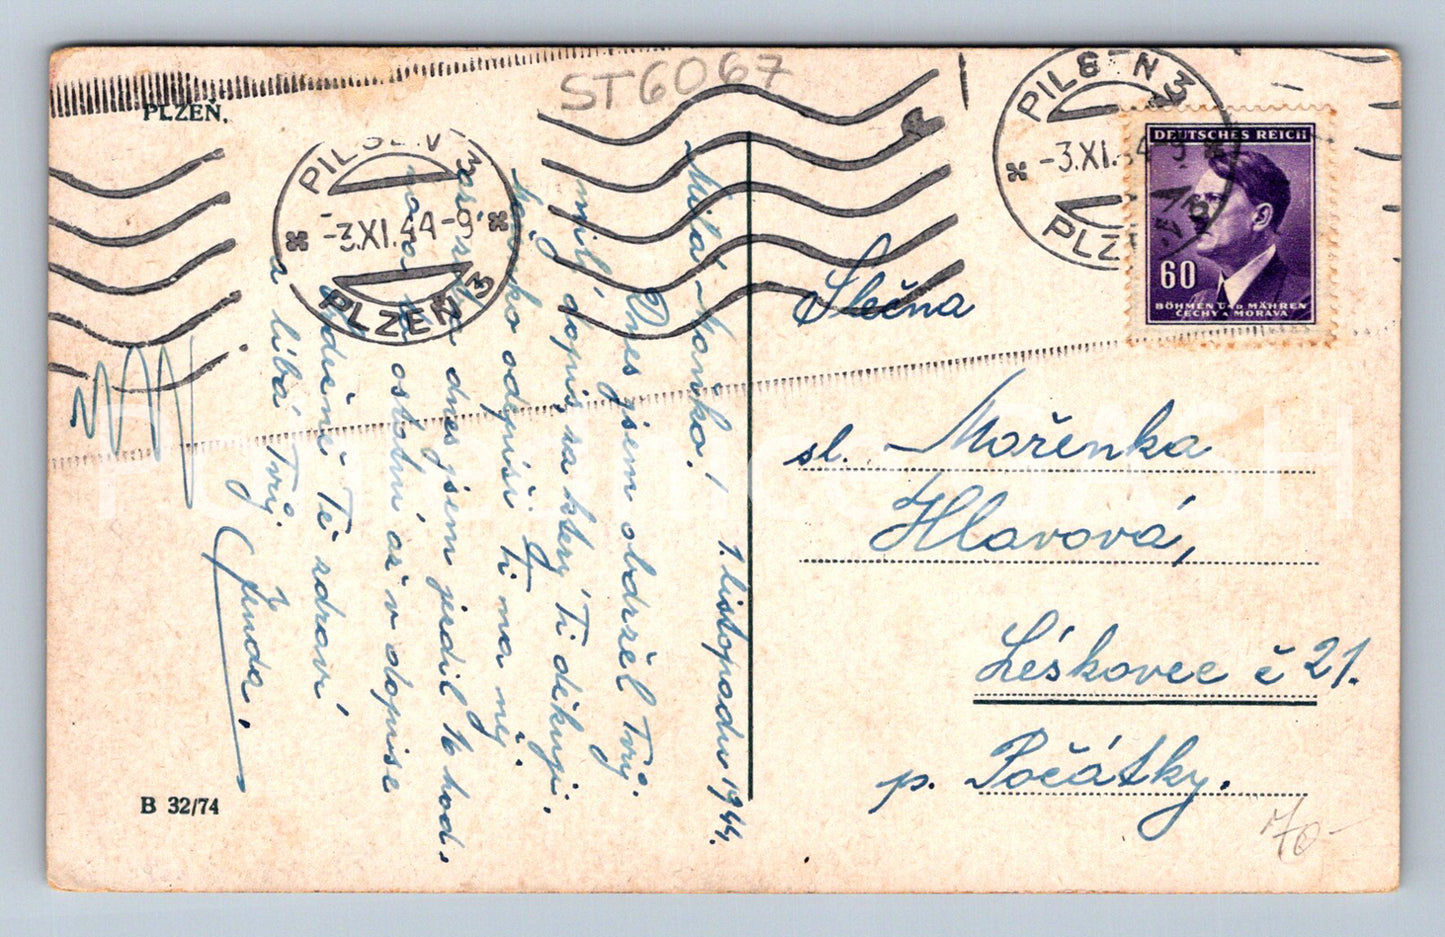 PLZEŇ.
ST6067
PILSEN 3
-3.XI.44-9
PLZEŇ 3
PILSEN 3
-3.XI.44-9
DEUTSCHES REICH
60
BÖHMEN UND MÄHREN
ČECHY A MORAVA
1. listopadu 1944.
Milá Mařenko!
Dnes jsem obdržel Tvůj
milý dopis za který Ti děkuji.
odepisi Ti na něj
dnes jsem jezdil 16 hod.
ostatní až v dopise
Tě zdraví
a líbá Tvůj
Jenda.
B 32/74
Slečna
sl. Mařenka
Hlavová,
Léskovec č 21.
p. Počátky.
70-